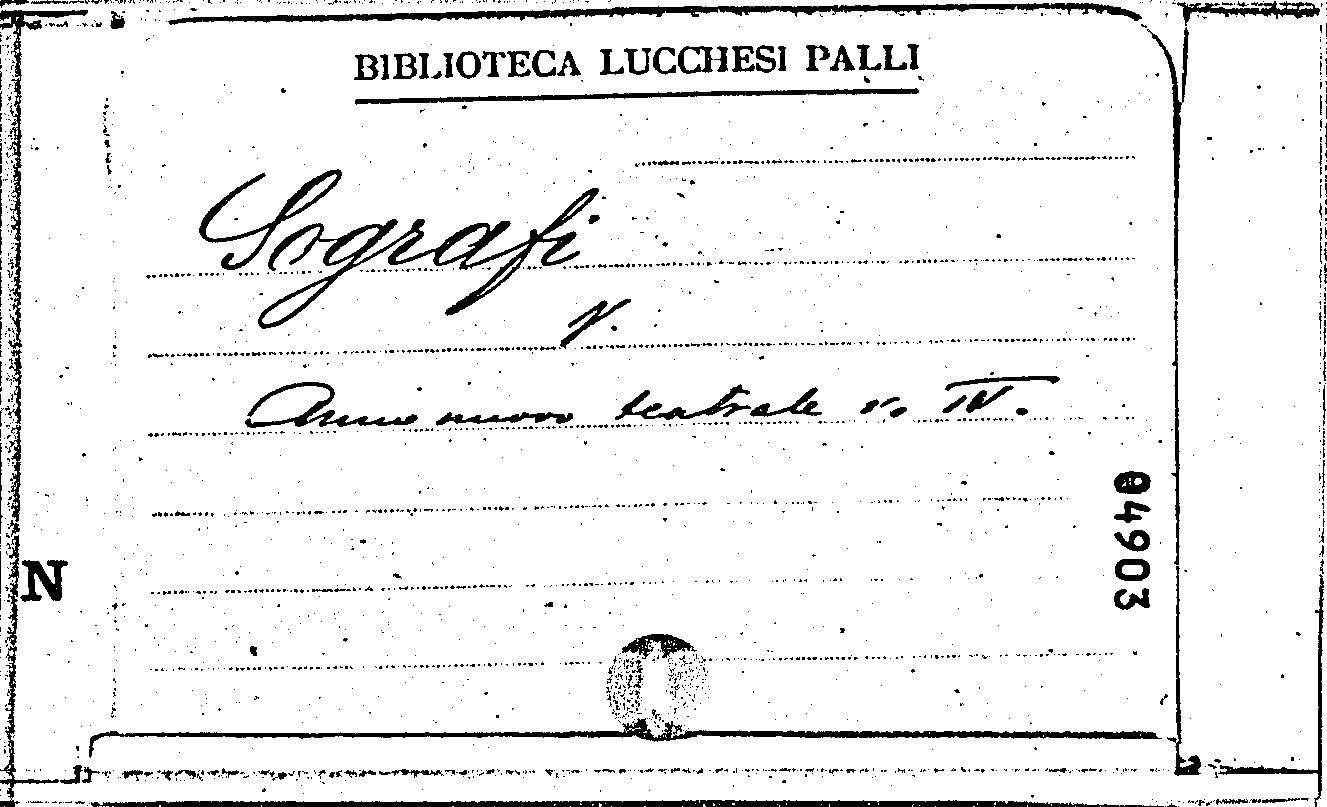 BIBLIOTECA LUCCHESI PALLI
Sografi
V.
Anno nuovo teatrale v. IV.
04903
N